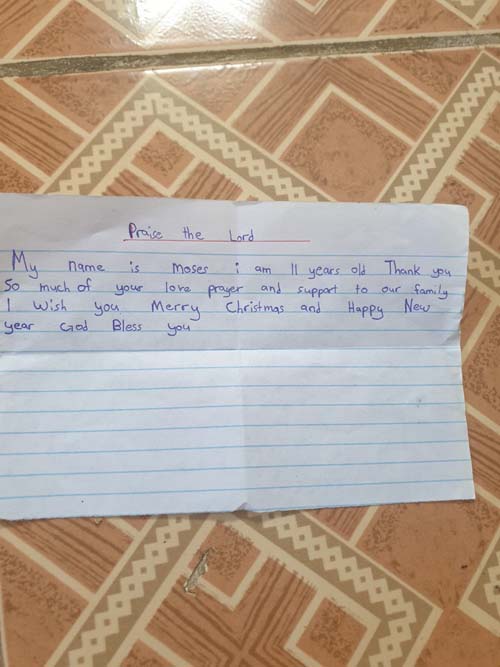 Praise the Lord
My name is Moses i am 11 years old Thank you
So much of your love prayer and support to our family
I Wish you Merry Christmas and Happy New
year God Bless you